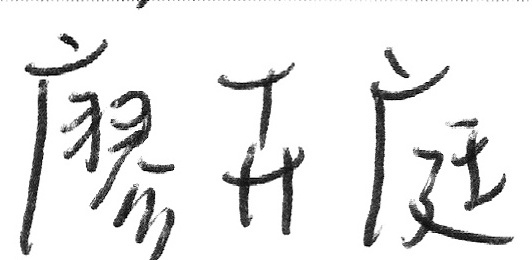 廖卉庭